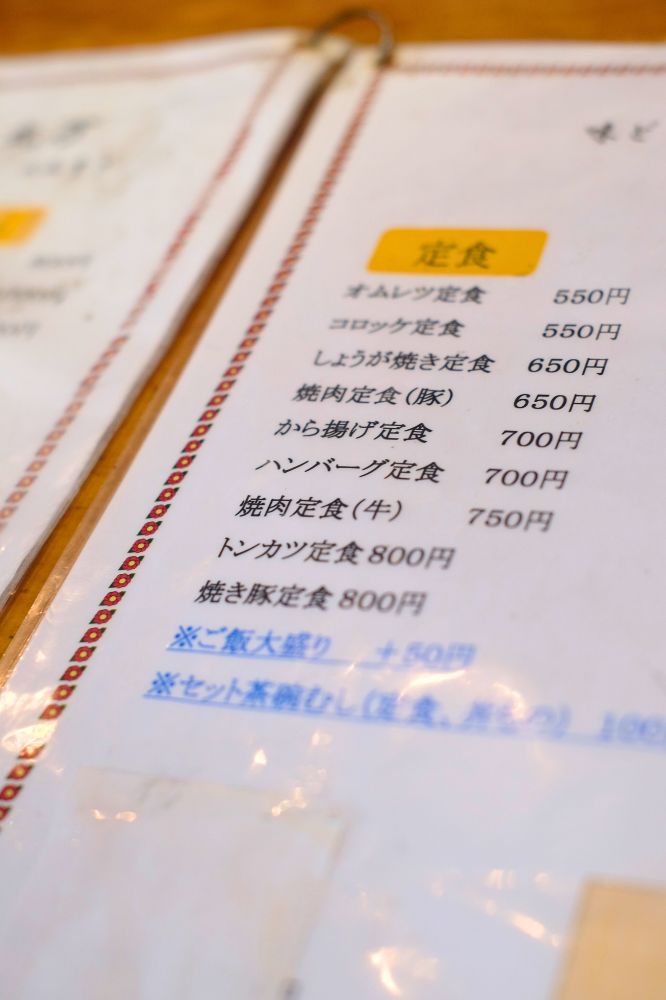 味ど
定食
オムレツ定食 550円
コロッケ定食 550円
しょうが焼き定食 650円
焼肉定食(豚) 650円
から揚げ定食 700円
ハンバーグ定食 700円
焼肉定食(牛) 750円
トンカツ定食 800円
焼き豚定食 800円
※ご飯大盛り +50円
※セット茶碗むし(定食、丼もの) 100